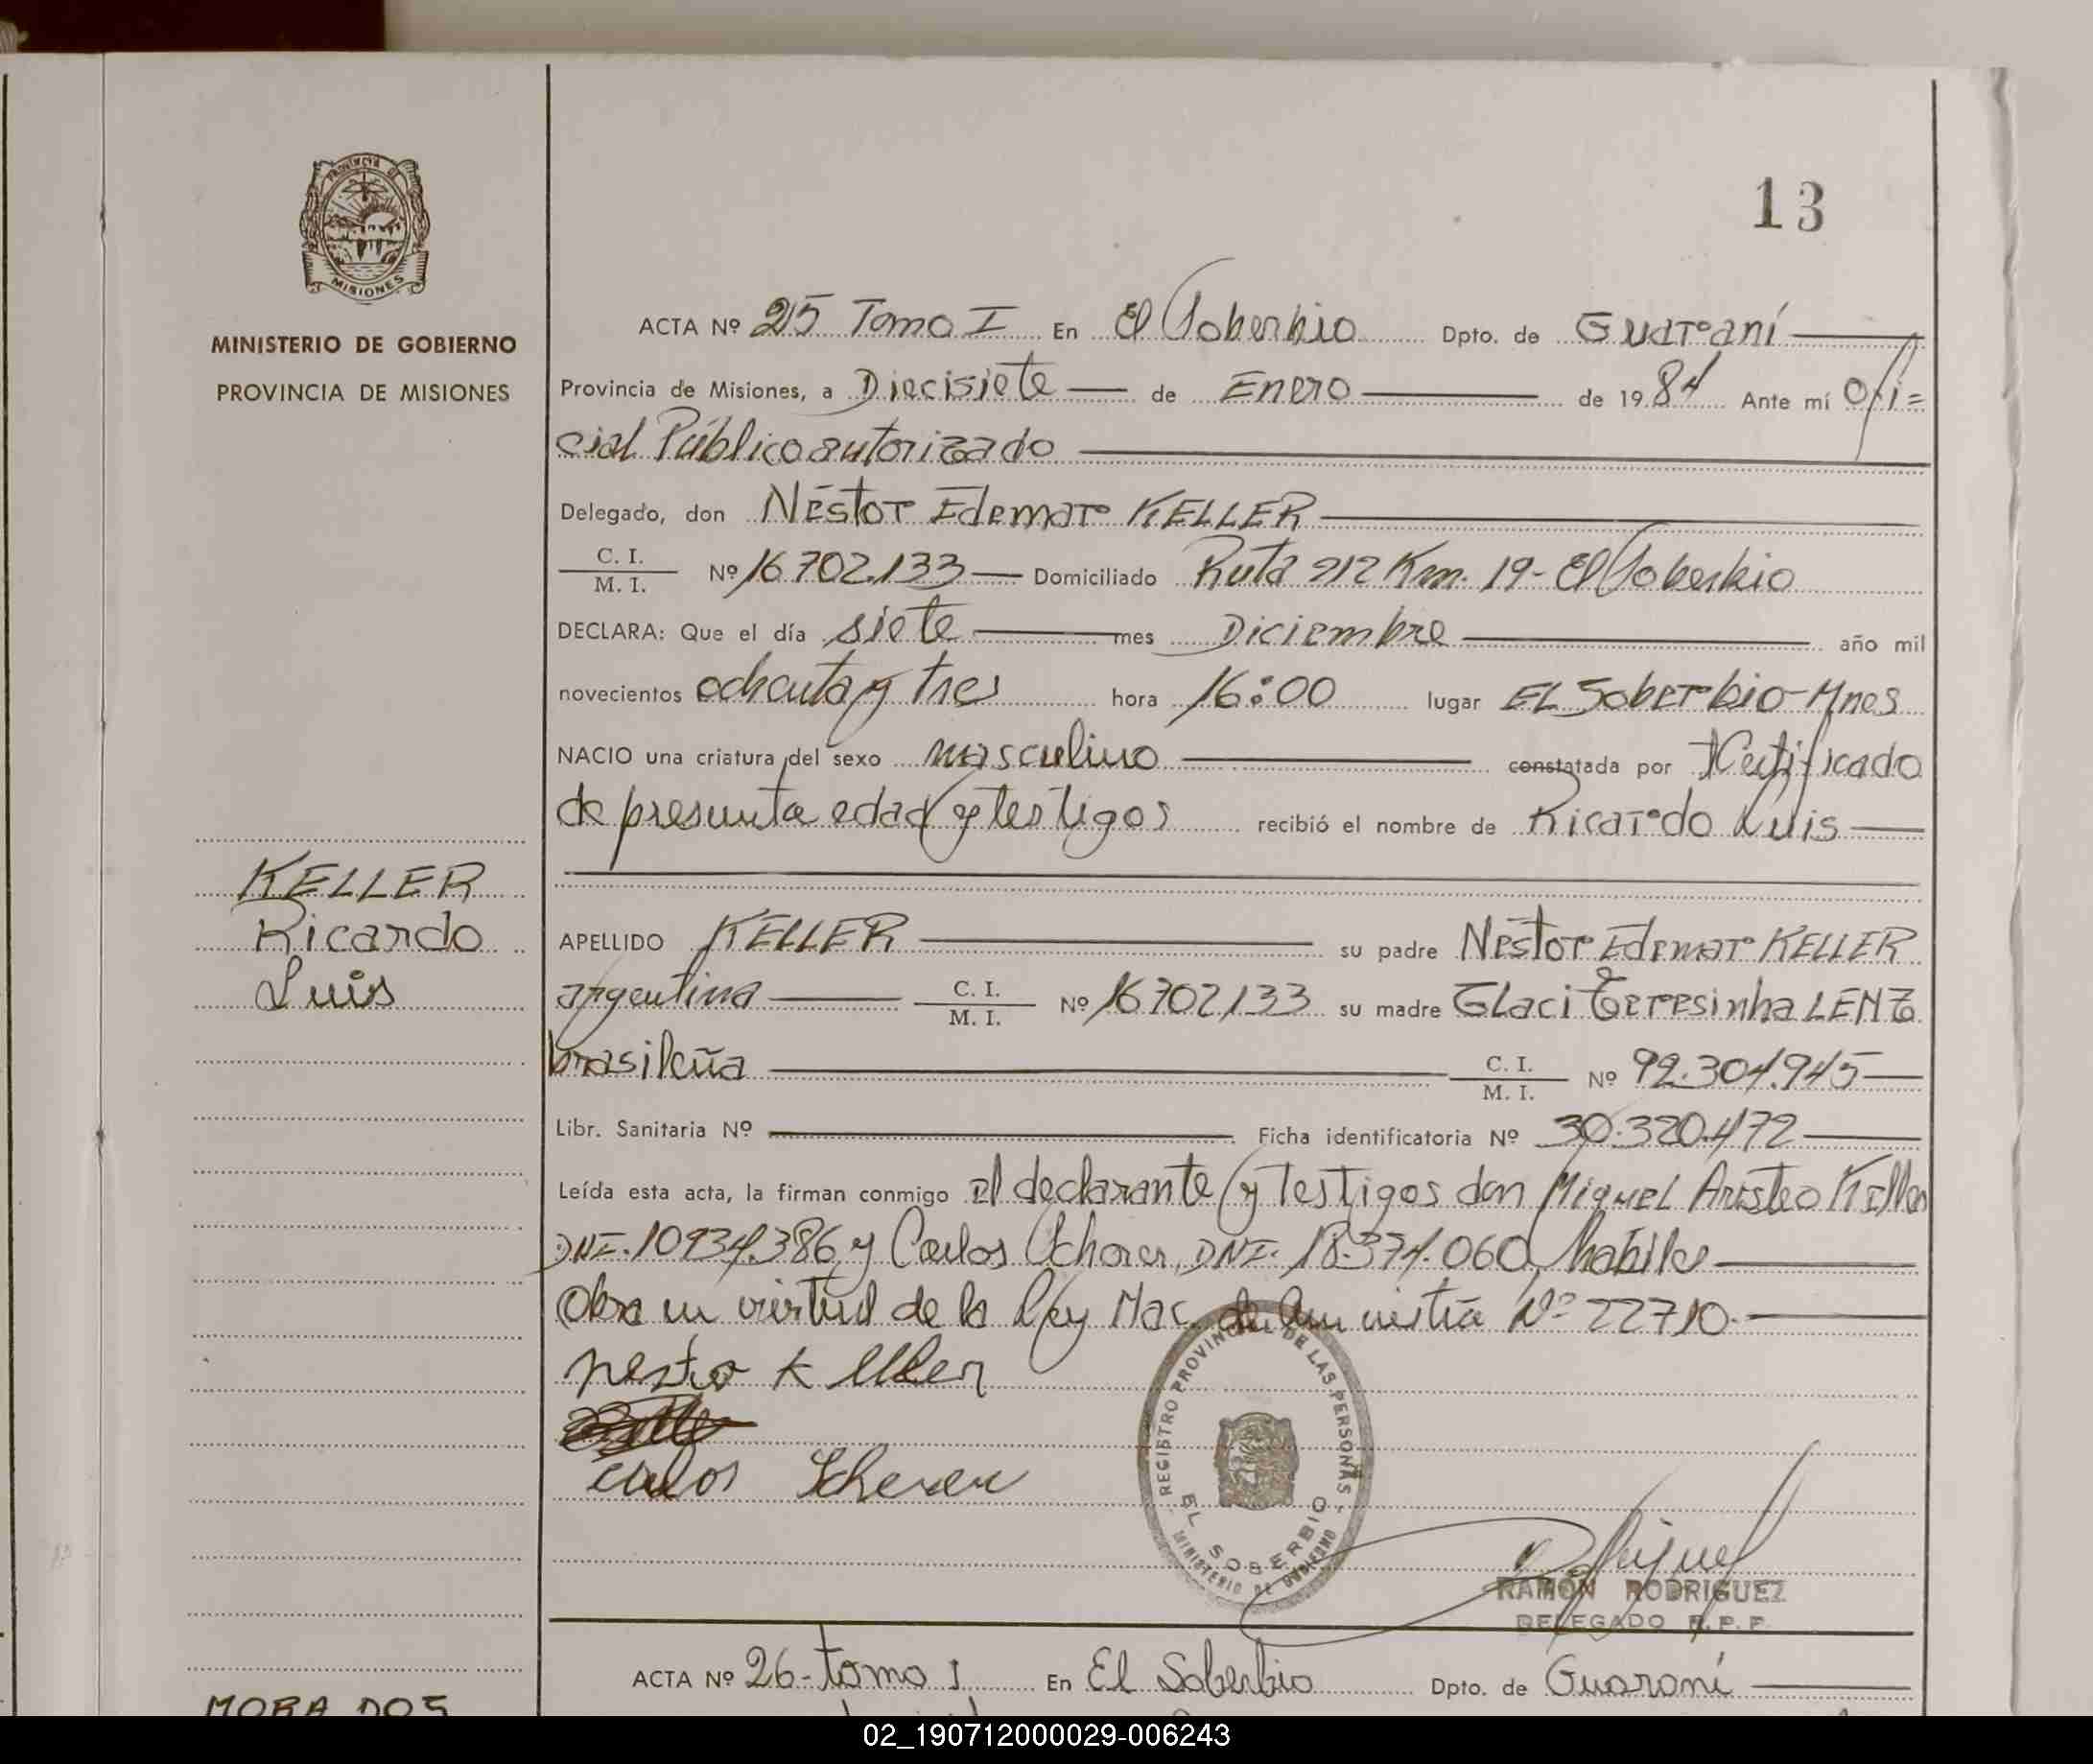 PROVINCIA DE
MISIONES
MINISTERIO DE GOBIERNO
PROVINCIA DE MISIONES
13
ACTA Nº 25 Tomo I En El Soberbio Dpto. de Guaraní
Provincia de Misiones, a Diecisiete de Enero de 1984 Ante mí Ofi=
cial Público autorizado
Delegado, don Néstor Edemar KELLER
C. I.
M. I. Nº 16.702.133 Domiciliado Ruta 212 Km. 19- El Soberbio
DECLARA: Que el día siete mes Diciembre año mil
novecientos ochenta y tres hora 16:00 lugar EL Soberbio-Mnes
NACIO una criatura del sexo masculino constatada por Certificado
de presunta edad y testigos recibió el nombre de Ricardo Luis
KELLER
Ricardo
Luis
APELLIDO KELLER su padre Nestor Edemar KELLER
argentina C. I.
M. I. Nº 16702133 su madre Glaci Teresinha LENZ
brasileña C. I.
M. I. Nº 92.304.945
Libr. Sanitaria Nº Ficha identificatoria Nº 30.320.472
Leída esta acta, la firman conmigo el declarante y testigos don Miguel Aristeo Keller
DNI. 10934.386 y Carlos Scherer, DNI. 18.374.060, habiles
Obra en virtud de la Ley Nac. de Amnistía Nº 22710.
Nestor Keller
Carlos Scherer
REGISTRO PROVINCIAL DE LAS PERSONAS
EL SOBERBIO
MINISTERIO DE GOBIERNO
RAMÓN RODRIGUEZ
DELEGADO R. P. P.
ACTA Nº 26-tomo I En El Soberbio Dpto. de Guaraní
MORA DOS
02_190712000029-006243